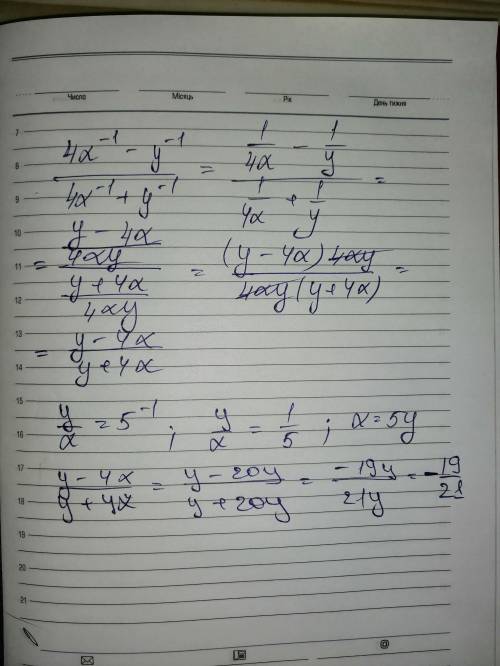 Число Місяць Рік День тижня
7
8
9
10
11
12
13
14
15
16
17
18
19
20
21
(4x⁻¹ - y⁻¹)/(4x⁻¹ + y⁻¹) = (1/4x - 1/y)/(1/4x + 1/y) =
= ((y - 4x)/4xy)/((y + 4x)/4xy) = (y - 4x)4xy/4xy(y + 4x) =
= (y - 4x)/(y + 4x)
y/x = 5⁻¹ ; y/x = 1/5 ; x = 5y
(y - 4x)/(y + 4x) = (y - 20y)/(y + 20y) = -19y/21y = -19/21
@